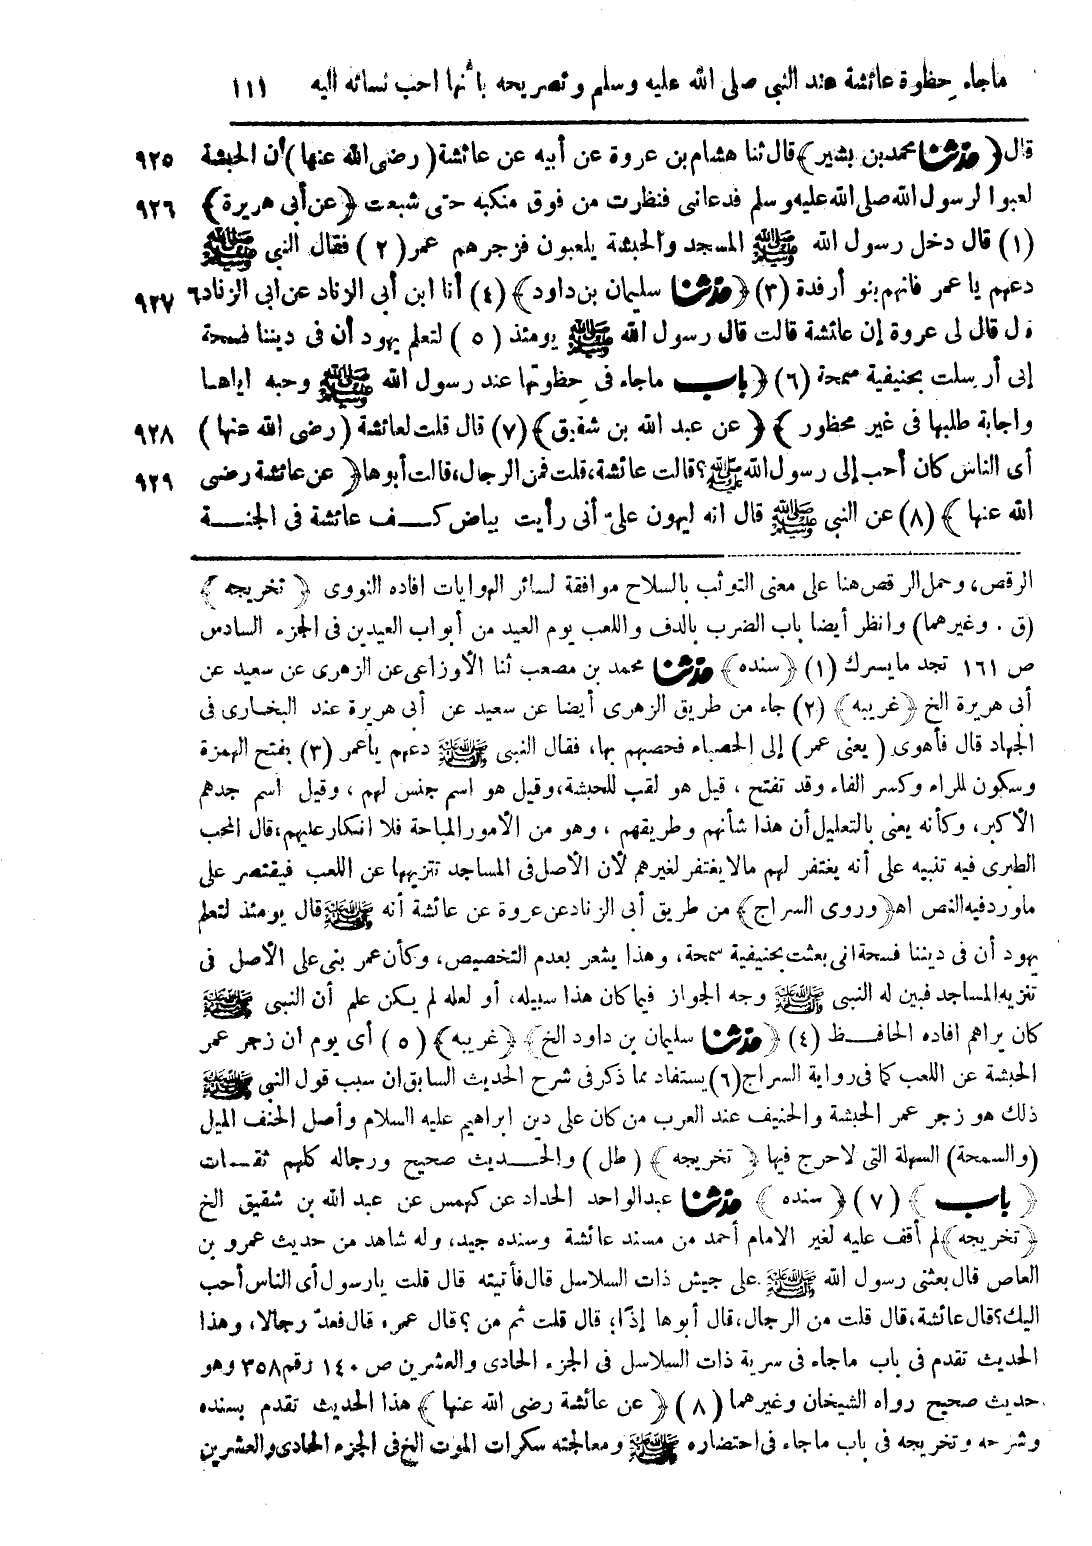 ماجاء حظوة عائشة عند النبى صلى الله عليه وسلم وتصريحه بأنها احب نسائه اليه ١١١
قال ﴿حدثنا محمد بن بشير﴾ قال ثنا هشام بن عروة عن أبيه عن عائشة (رضى الله عنها) أن الحبشة ٩٢٥
لعبوا لرسول الله صلى الله عليه وسلم فدعانى فنظرت من فوق منكبه حتى شبعت ﴿عن أبى هريرة﴾ ٩٢٦
(١) قال دخل رسول الله ﷺ المسجد والحبشة يلعبون فزجرهم عمر (٢) فقال النبى ﷺ
دعهم يا عمر فانهم بنو أرفدة (٣) ﴿حدثنا سليمان بن داود﴾ (٤) أنا ابن أبى الزناد عن ابى الزناد ٩٢٧
قال قال لى عروة إن عائشة قالت قال رسول الله ﷺ يومئذ (٥) لتعلم يهود أن فى ديننا فسحة
إنى أرسلت بحنيفية سمحة (٦) ﴿باب ماجاء فى حظوتها عند رسول الله ﷺ وحبه اياهـا
واجابة طلبها فى غير محظور﴾ ﴿عن عبد الله بن شقيق﴾ (٧) قال قلت لعائشة (رضى الله عنها) ٩٢٨
أى الناس كان أحب إلى رسول الله ﷺ؟ قالت عائشة، قلت فمن الرجال، قالت أبوها ﴿عن عائشة رضى ٩٢٩
الله عنها﴾ (٨) عن النبى ﷺ قال انه ليهون علىّ أنى رأيت بياض كـف عائشة فى الجنـة
الرقص، وحمل الرقص هنا على معنى التوثب بالسلاح موافقة لسائر الروايات افاده النووى ﴿تخريجه﴾
(ق . وغيرهما) وانظر أيضا باب الضرب بالدف واللعب يوم العيد من أبواب العيدين فى الجزء السادس
ص ١٦١ تجد ما يسرك (١) ﴿سنده﴾ حدثنا محمد بن مصعب ثنا الأوزاعى عن الزهرى عن سعيد عن
أبى هريرة الخ ﴿غريبه﴾ (٢) جاء من طريق الزهرى أيضا عن سعيد عن أبى هريرة عند البخـارى فى
الجهاد قال فأهوى (يعنى عمر) إلى الحصباء فحصبهم بها، فقال النبى ﷺ دعهم يا عمر (٣) بفتح الهمزة
وسكون الراء وكسر الفاء وقد تفتح ، قيل هو لقب للحبشة، وقيل هو اسم جنس لهم ، وقيل اسم جدهم
الأكبر، وكأنه يعنى بالتعليل أن هذا شأنهم وطريقهم ، وهو من الأمور المباحة فلا انكار عليهم، قال المحب
الطبرى فيه تنبيه على أنه يغتفر لهم مالا يغتفر لغيرهم لأن الأصل فى المساجد تنزيهها عن اللعب فيقتصر على
ماورد فيه النص اهـ ﴿وروى السراج﴾ من طريق أبى الزناد عن عروة عن عائشة أنه ﷺ قال يومئذ لتعلم
يهود أن فى ديننا فسحة انى بعثت بحنيفية سمحة، وهذا يشعر بعدم التخصيص، وكأن عمر بنى على الأصل فى
تنزيه المساجد فبين له النبى ﷺ وجه الجواز فيما كان هذا سبيله، أو لعله لم يكن علم أن النبى ﷺ
كان يراهم افاده الحافـظ (٤) ﴿حدثنا سليمان بن داود الخ﴾ ﴿غريبه﴾ (٥) أى يوم ان زجر عمر
الحبشة عن اللعب كما فى رواية السراج (٦) يستفاد مما ذكر فى شرح الحديث السابق ان سبب قول النبى ﷺ
ذلك هو زجر عمر الحبشة والحنيف عند العرب من كان على دين ابراهيم عليه السلام وأصل الحنف الميل
(والسمحة) السهلة التى لا حرج فيها ﴿تخريجه﴾ (طل) والحـديث صحيح ورجاله كلهم ثقـات
﴿باب﴾ (٧) ﴿سنده﴾ حدثنا عبد الواحد الحداد عن كهمس عن عبد الله بن شقيق الخ
﴿تخريجه﴾ لم أقف عليه لغير الامام أحمد من مسند عائشة وسنده جيد، وله شاهد من حديث عمرو بن
العاص قال بعثنى رسول الله ﷺ على جيش ذات السلاسل قال فأتيته قال قلت يارسول أى الناس أحب
اليك؟ قال عائشة، قال قلت من الرجال، قال أبوها إذًا؛ قال قلت ثم من ؟ قال عمر، قال فعدّ رجالا، وهذا
الحديث تقدم فى باب ماجاء فى سرية ذات السلاسل فى الجزء الحادى والعشرين ص ١٤٠ رقم ٣٥٨ وهو
حديث صحيح رواه الشيخان وغيرهما (٨) ﴿عن عائشة رضى الله عنها﴾ هذا الحديث تقدم بسنده
وشرحه وتخريجه فى باب ماجاء فى احتضاره ﷺ ومعالجته سكرات الموت الخ فى الجزء الحادى والعشرين